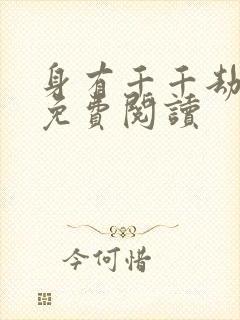 身有千千劫
免費閱讀
今何惜